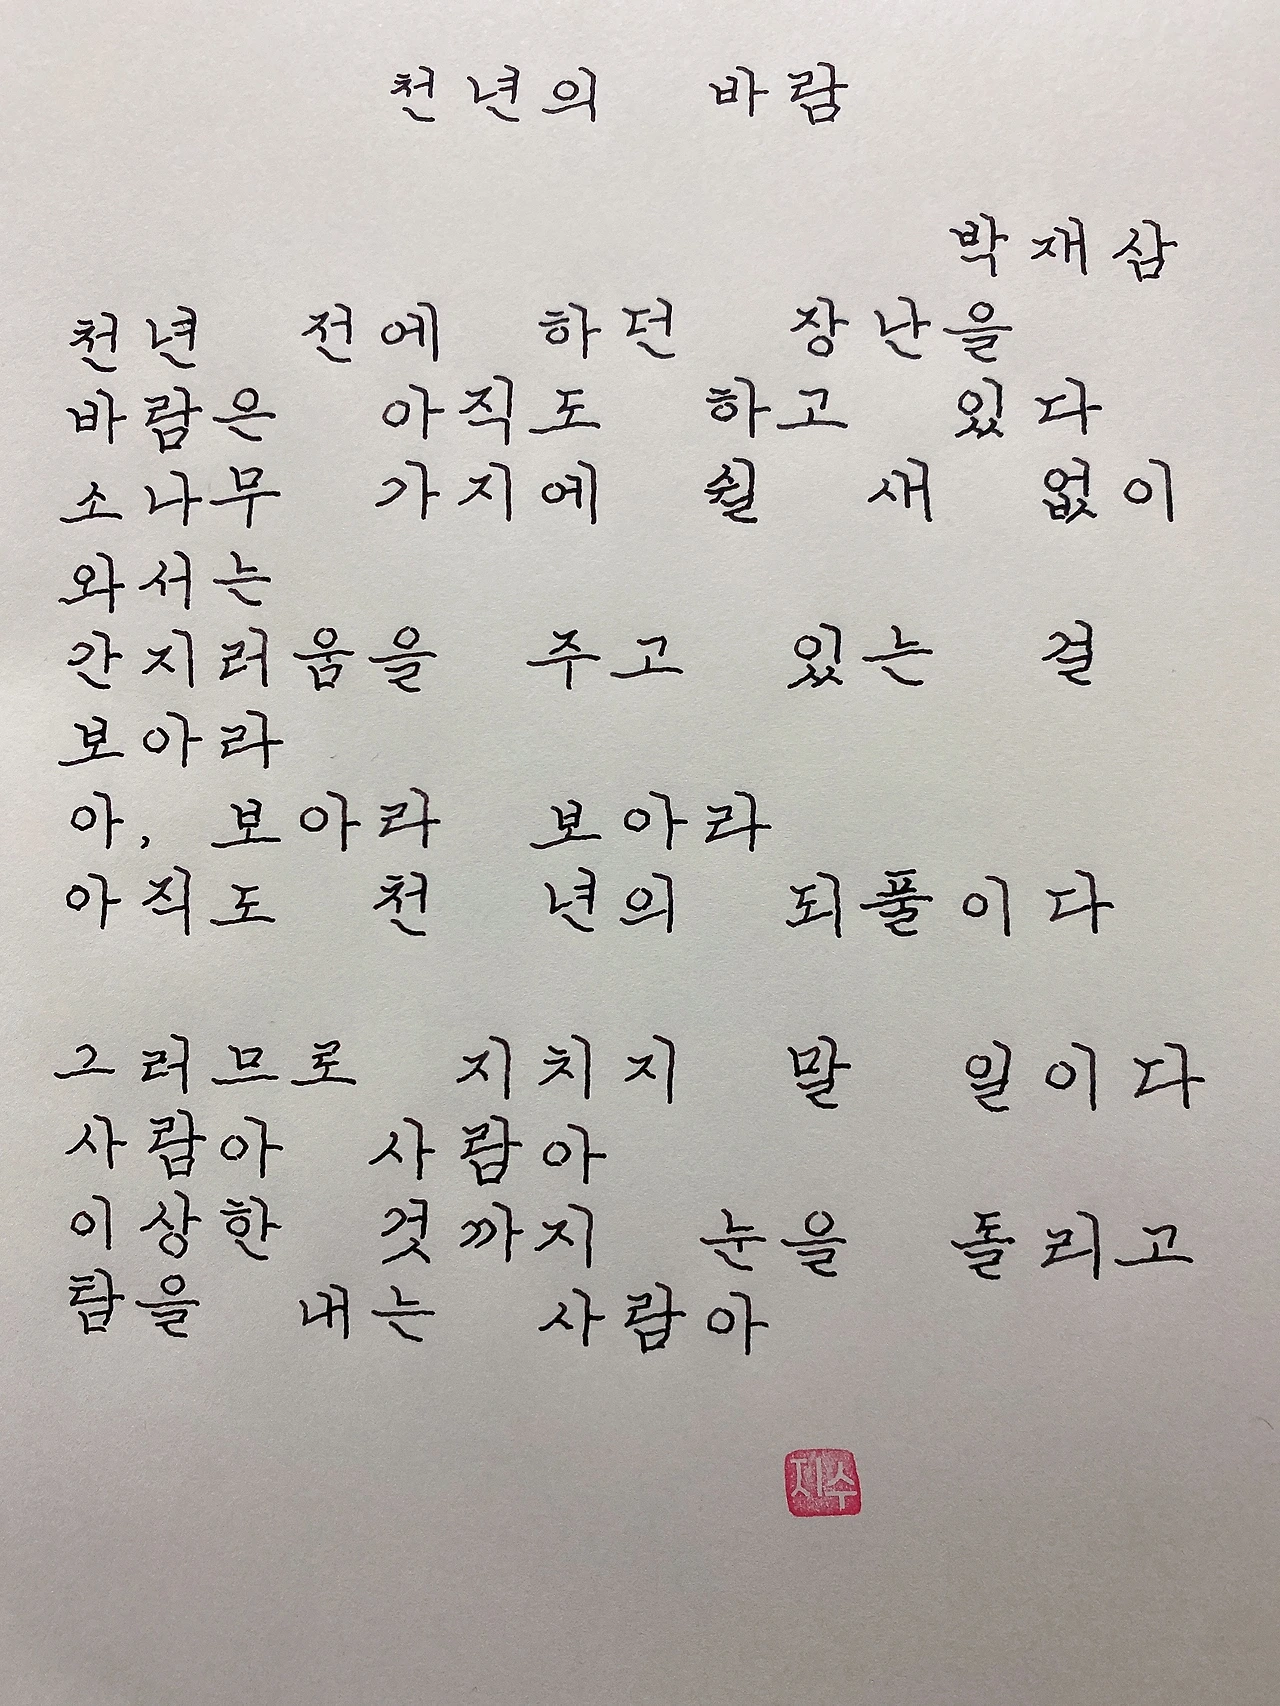 천년의 바람
박재삼
천년 전에 하던 장난을
바람은 아직도 하고 있다
소나무 가지에 쉴 새 없이
와서는
간지러움을 주고 있는 걸
보아라
아, 보아라 보아라
아직도 천 년의 되풀이다
그러므로 지치지 말 일이다
사람아 사람아
이상한 것까지 눈을 돌리고
탐을 내는 사람아
지수